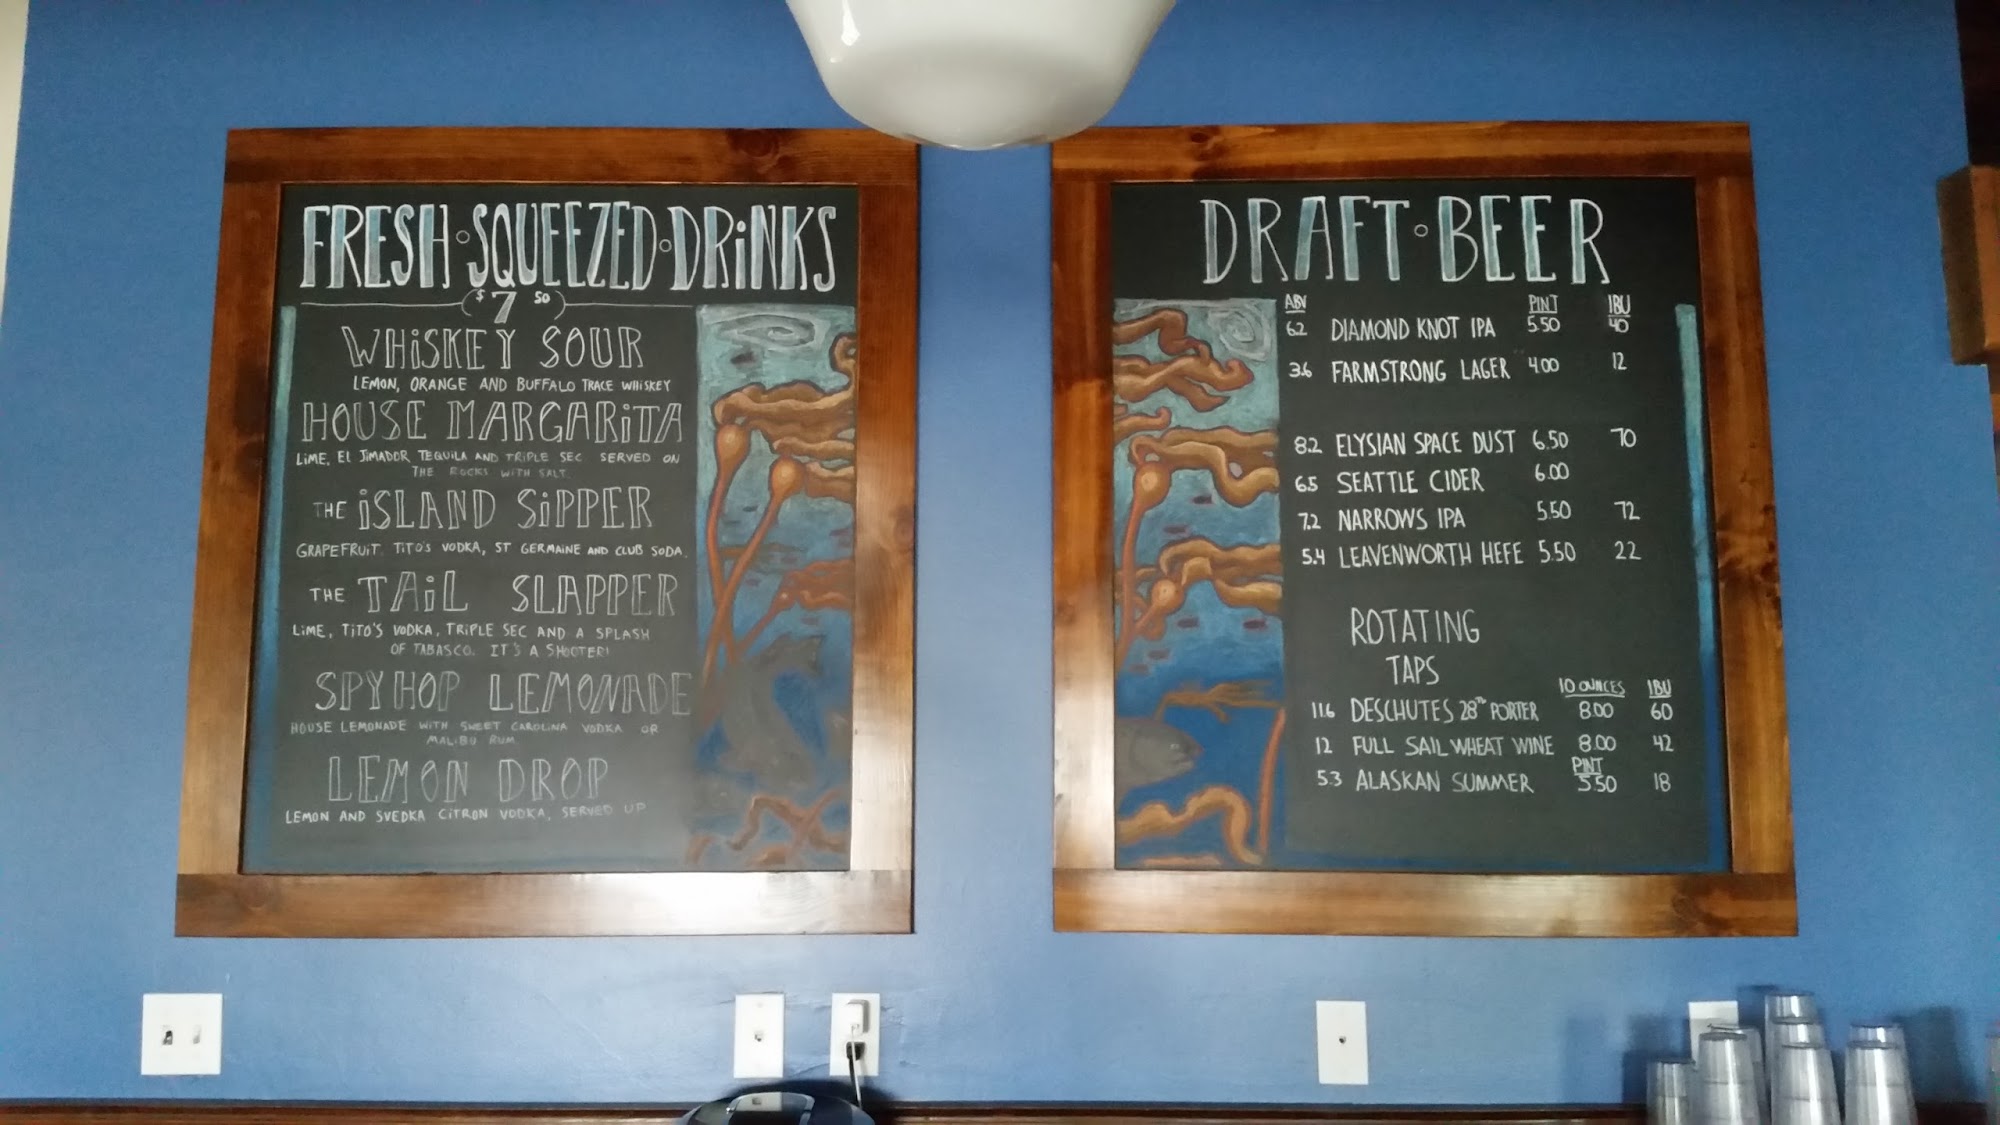 FRESH · SQUEEZED · DRiNKS
$7 50
WHiSKEY SOUR
LEMON, ORANGE AND BUFFALO TRACE WHISKEY
HOUSE MARGARiTA
LIME, El JIMADOR TEQUILA AND TRIPLE SEC SERVED ON
THE ROCKS WITH SALT.
THE iSLAND SiPPER
GRAPEFRUIT. TITO'S VODKA, ST GERMAINE AND CLUB SODA.
THE TAiL SLAPPER
LIME, TITO'S VODKA, TRIPLE SEC AND A SPLASH
OF TABASCO. IT'S A SHOOTER!
SPYHOP LEMONADE
HOUSE LEMONADE WITH SWEET CAROLINA VODKA OR
MALIBU RUM
LEMON DROP
LEMON AND SVEDKA CITRON VODKA, SERVED UP
DRAFT · BEER
ABV PINT IBU
6.2 DIAMOND KNOT IPA 5.50 40
3.6 FARMSTRONG LAGER 4.00 12
8.2 ELYSIAN SPACE DUST 6.50 70
6.5 SEATTLE CIDER 6.00
7.2 NARROWS IPA 5.50 72
5.4 LEAVENWORTH HEFE 5.50 22
ROTATING
TAPS
10 OUNCES IBU
11.6 DESCHUTES 28TH PORTER 8.00 60
12 FULL SAIL WHEAT WINE 8.00 42
PINT
5.3 ALASKAN SUMMER 5.50 18